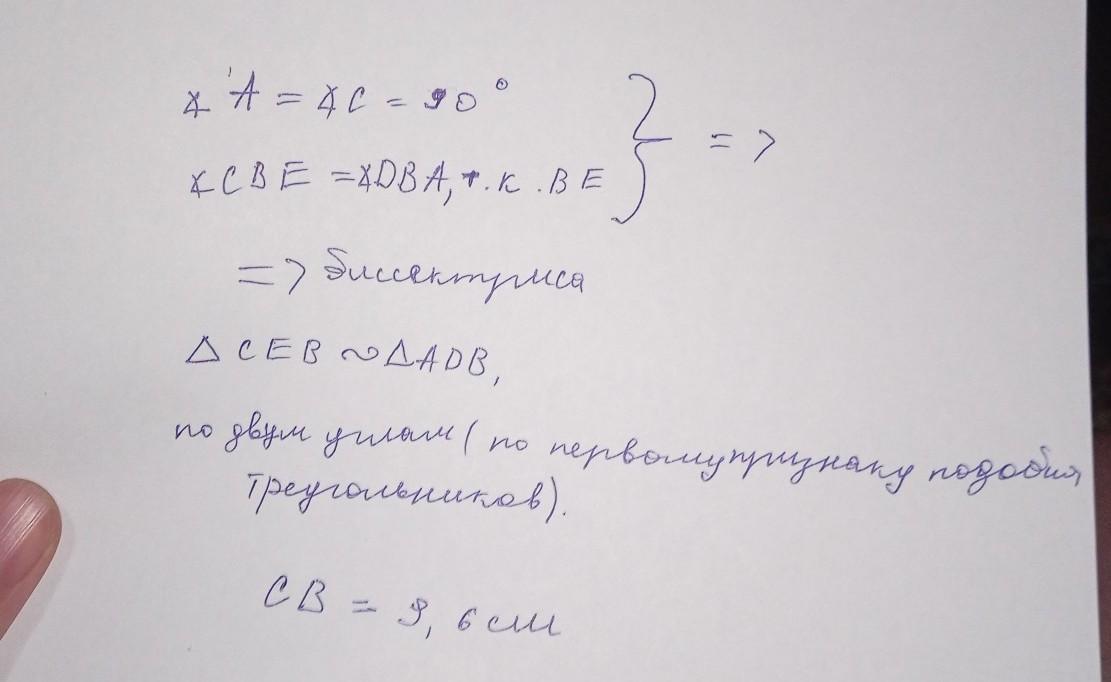 ∡A = ∡C = 90°
∡CBE = ∡DBA, т.к. BE } =>
=> биссектриса
△ CEB ∾ △ADB,
по двум углам (по первому признаку подобия
треугольников).
CB = 9,6 см